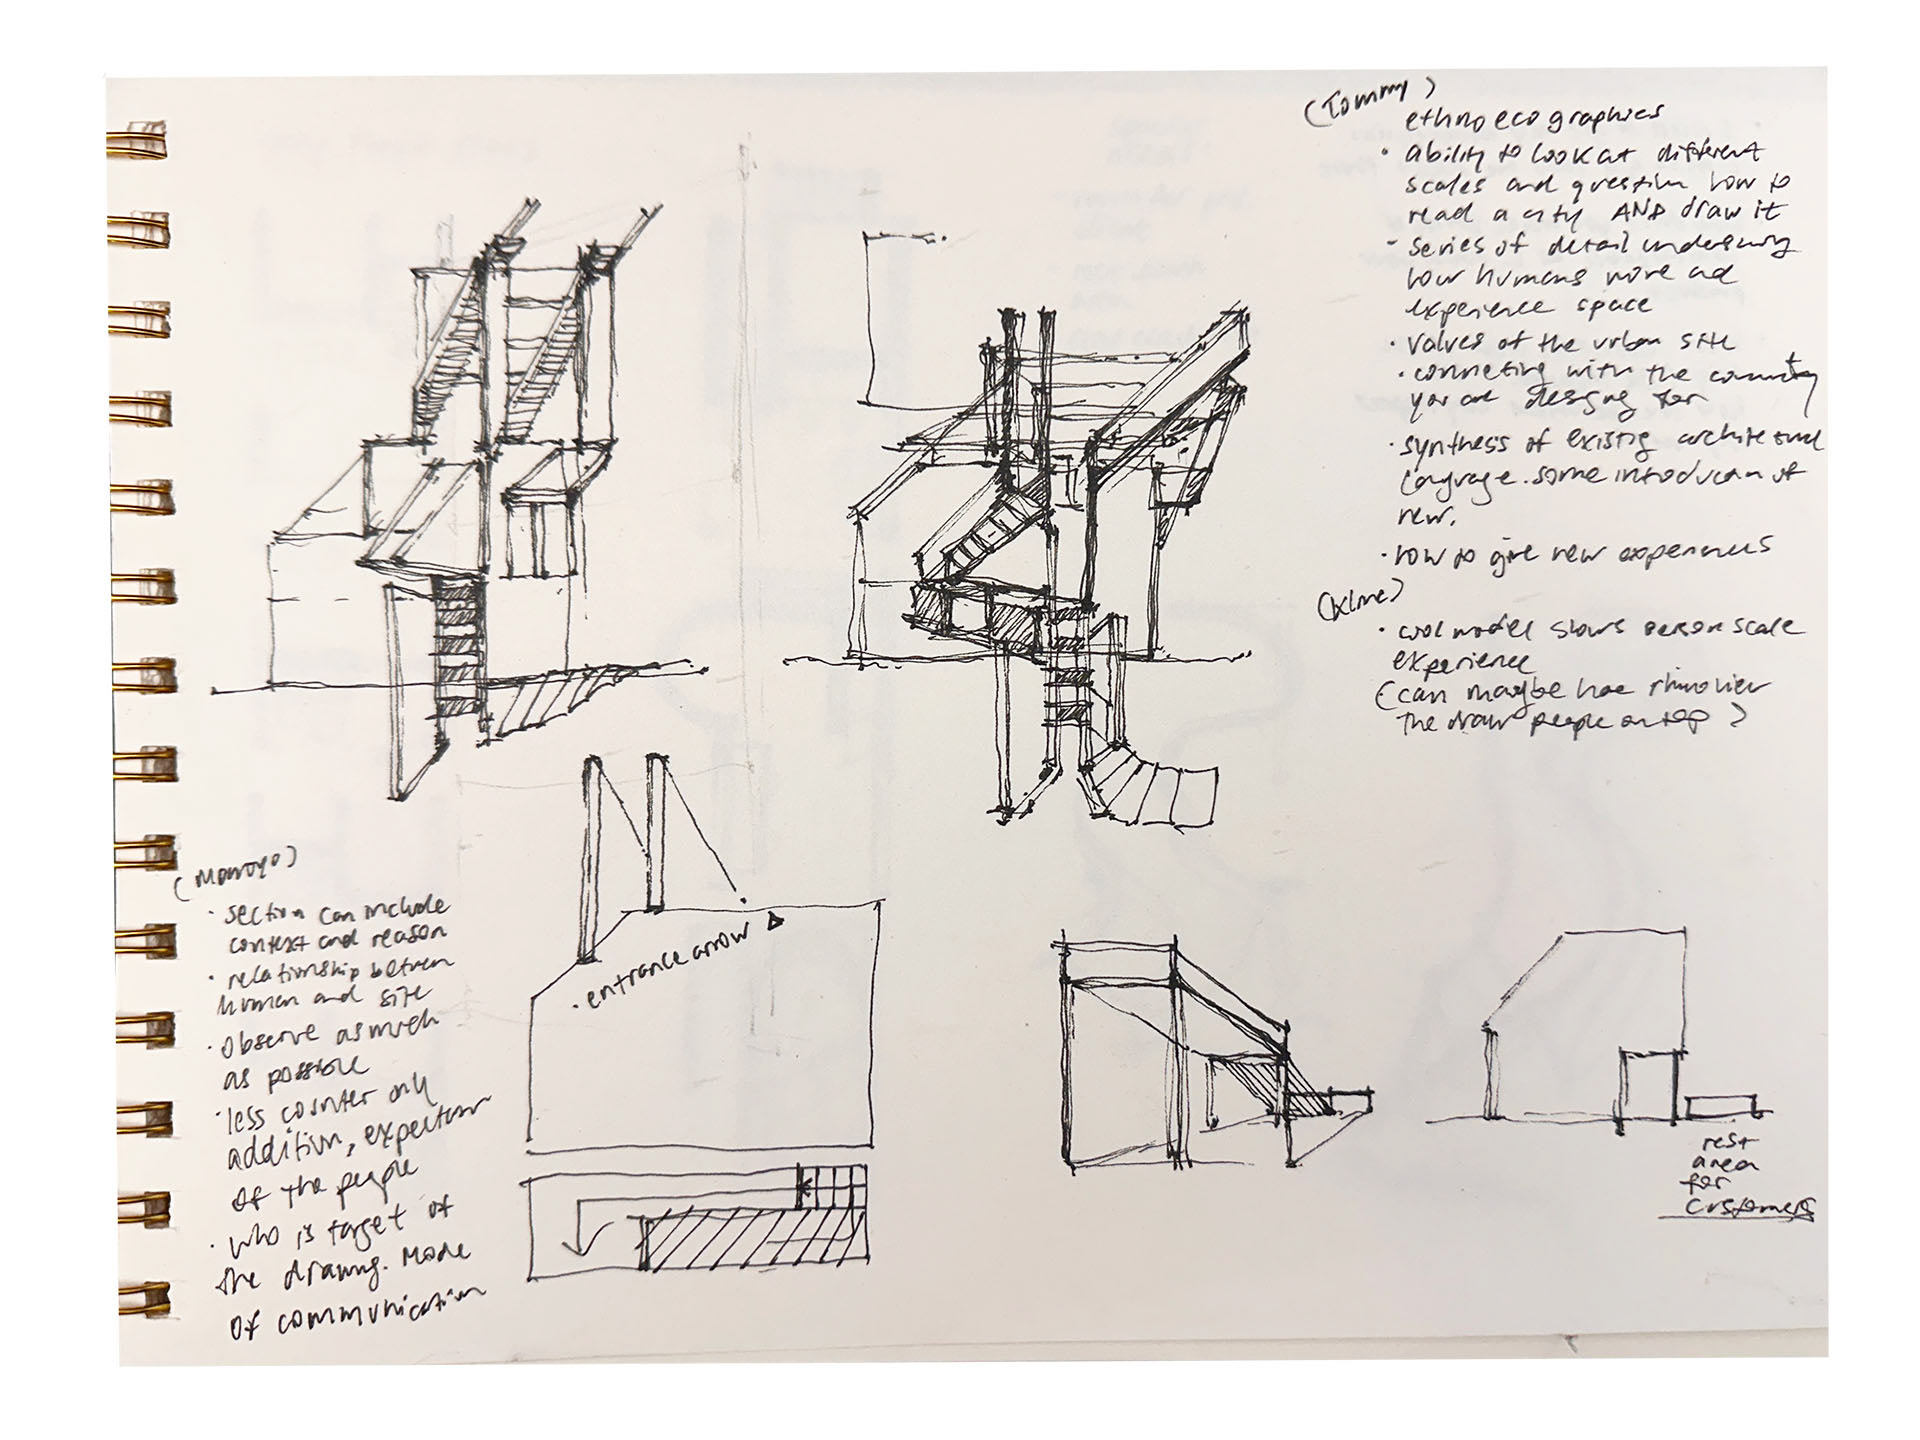 (Tommy)
ethnoecographics
· ability to look at different
scales and question how to
read a city AND draw it
· series of detail
how humans move and
experience space
· values of the urban site
· connecting with the community
you are designing for
· synthesis of existing architectural
language. some introduction of
new.
· how to give new experiences
· cool model shows person scale
experience
(can maybe have rhino view
the draw people on top)
· section can include
context and reason
· relationship between
human and site
· observe as much
as possible
· less counter only
addition,
of the people
· who is target of
the drawing. Mode
of communication
· entrance arrow
rest
area
for
customers